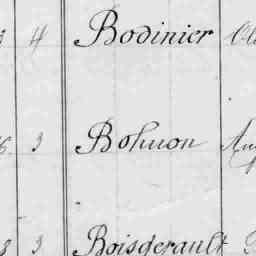 4 Bodinier
3 Bohuon
3 Boisgerault